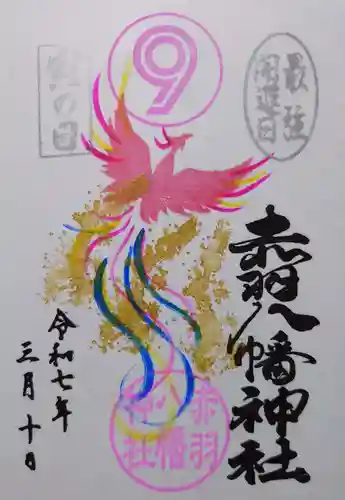 最強
開運日
9
寅の日
赤羽八幡神社
令和七年
三月十日
赤羽
八幡
神社